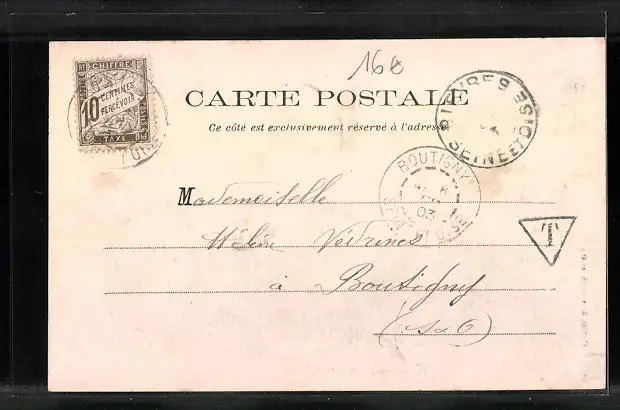 16€
CHIFFRE
10 CENTIMES
À PERCEVOIR
TAXE
CARTE POSTALE
Ce côté est exclusivement réservé à l'adresse
BIÈVRES
SEINE ET OISE
BOUTIGNY
03
T
Mademoiselle
Hélène Védrines
à Boutigny
(S&O)